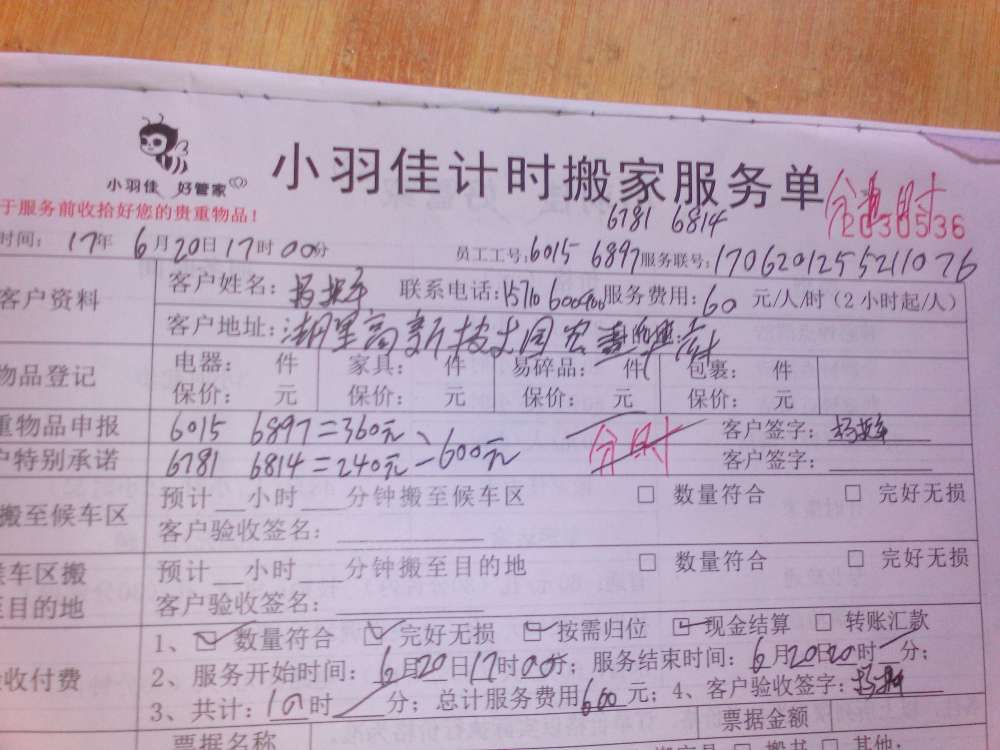 小羽佳 好管家
小羽佳计时搬家服务单
于服务前收拾好您的贵重物品！
6781 6814
2030536
时间：17年6月20日17时00分
员工工号：6015 6897 服务联号：1706201255211076
客户资料
客户姓名： 联系电话：15710600900 服务费用：60元/人/时（2小时起/人）
客户地址：湖里高新技术园
物品登记
电器： 件 家具： 件 易碎品： 件 包裹： 件
保价： 元 保价： 元 保价： 元 保价： 元
重物品申报 6015 6897=360元 客户签字：
600元 分时
户特别承诺 6781 6814=240元 客户签字：
搬至候车区
预计__小时__分钟搬至候车区 □ 数量符合 □ 完好无损
客户验收签名：
候车区搬
至目的地
预计__小时__分钟搬至目的地 □ 数量符合 □ 完好无损
客户验收签名：
收付费
1、☑ 数量符合 ☑ 完好无损 ☑ 按需归位 ☑ 现金结算 □ 转账汇款
2、服务开始时间：6月20日17时00分；服务结束时间：6月20日20时 分；
3、共计：10时 分；总计服务费用600元；4、客户验收签字：
票据名称 票据金额
搬书 □ 其他：